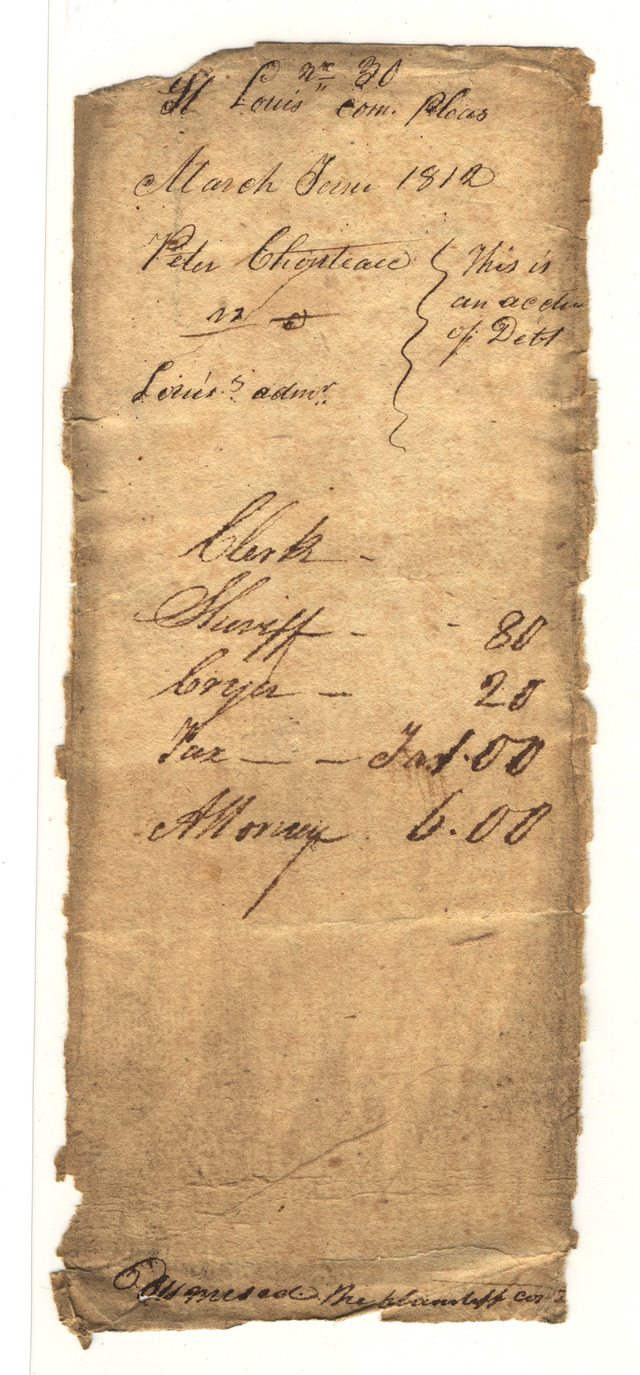 no 30
St Louis com. Pleas
March Term 1812
Peter Chouteau
vs
Louis's admr.
This is
an action
of Debt
Clerk -
Sheriff - - 80
Cryer - 20
Tax - - 1.00
Attorney 6.00
Dismissed. The plaintiff